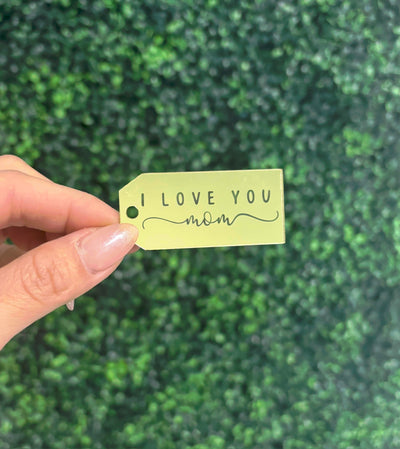 I LOVE YOU
mom